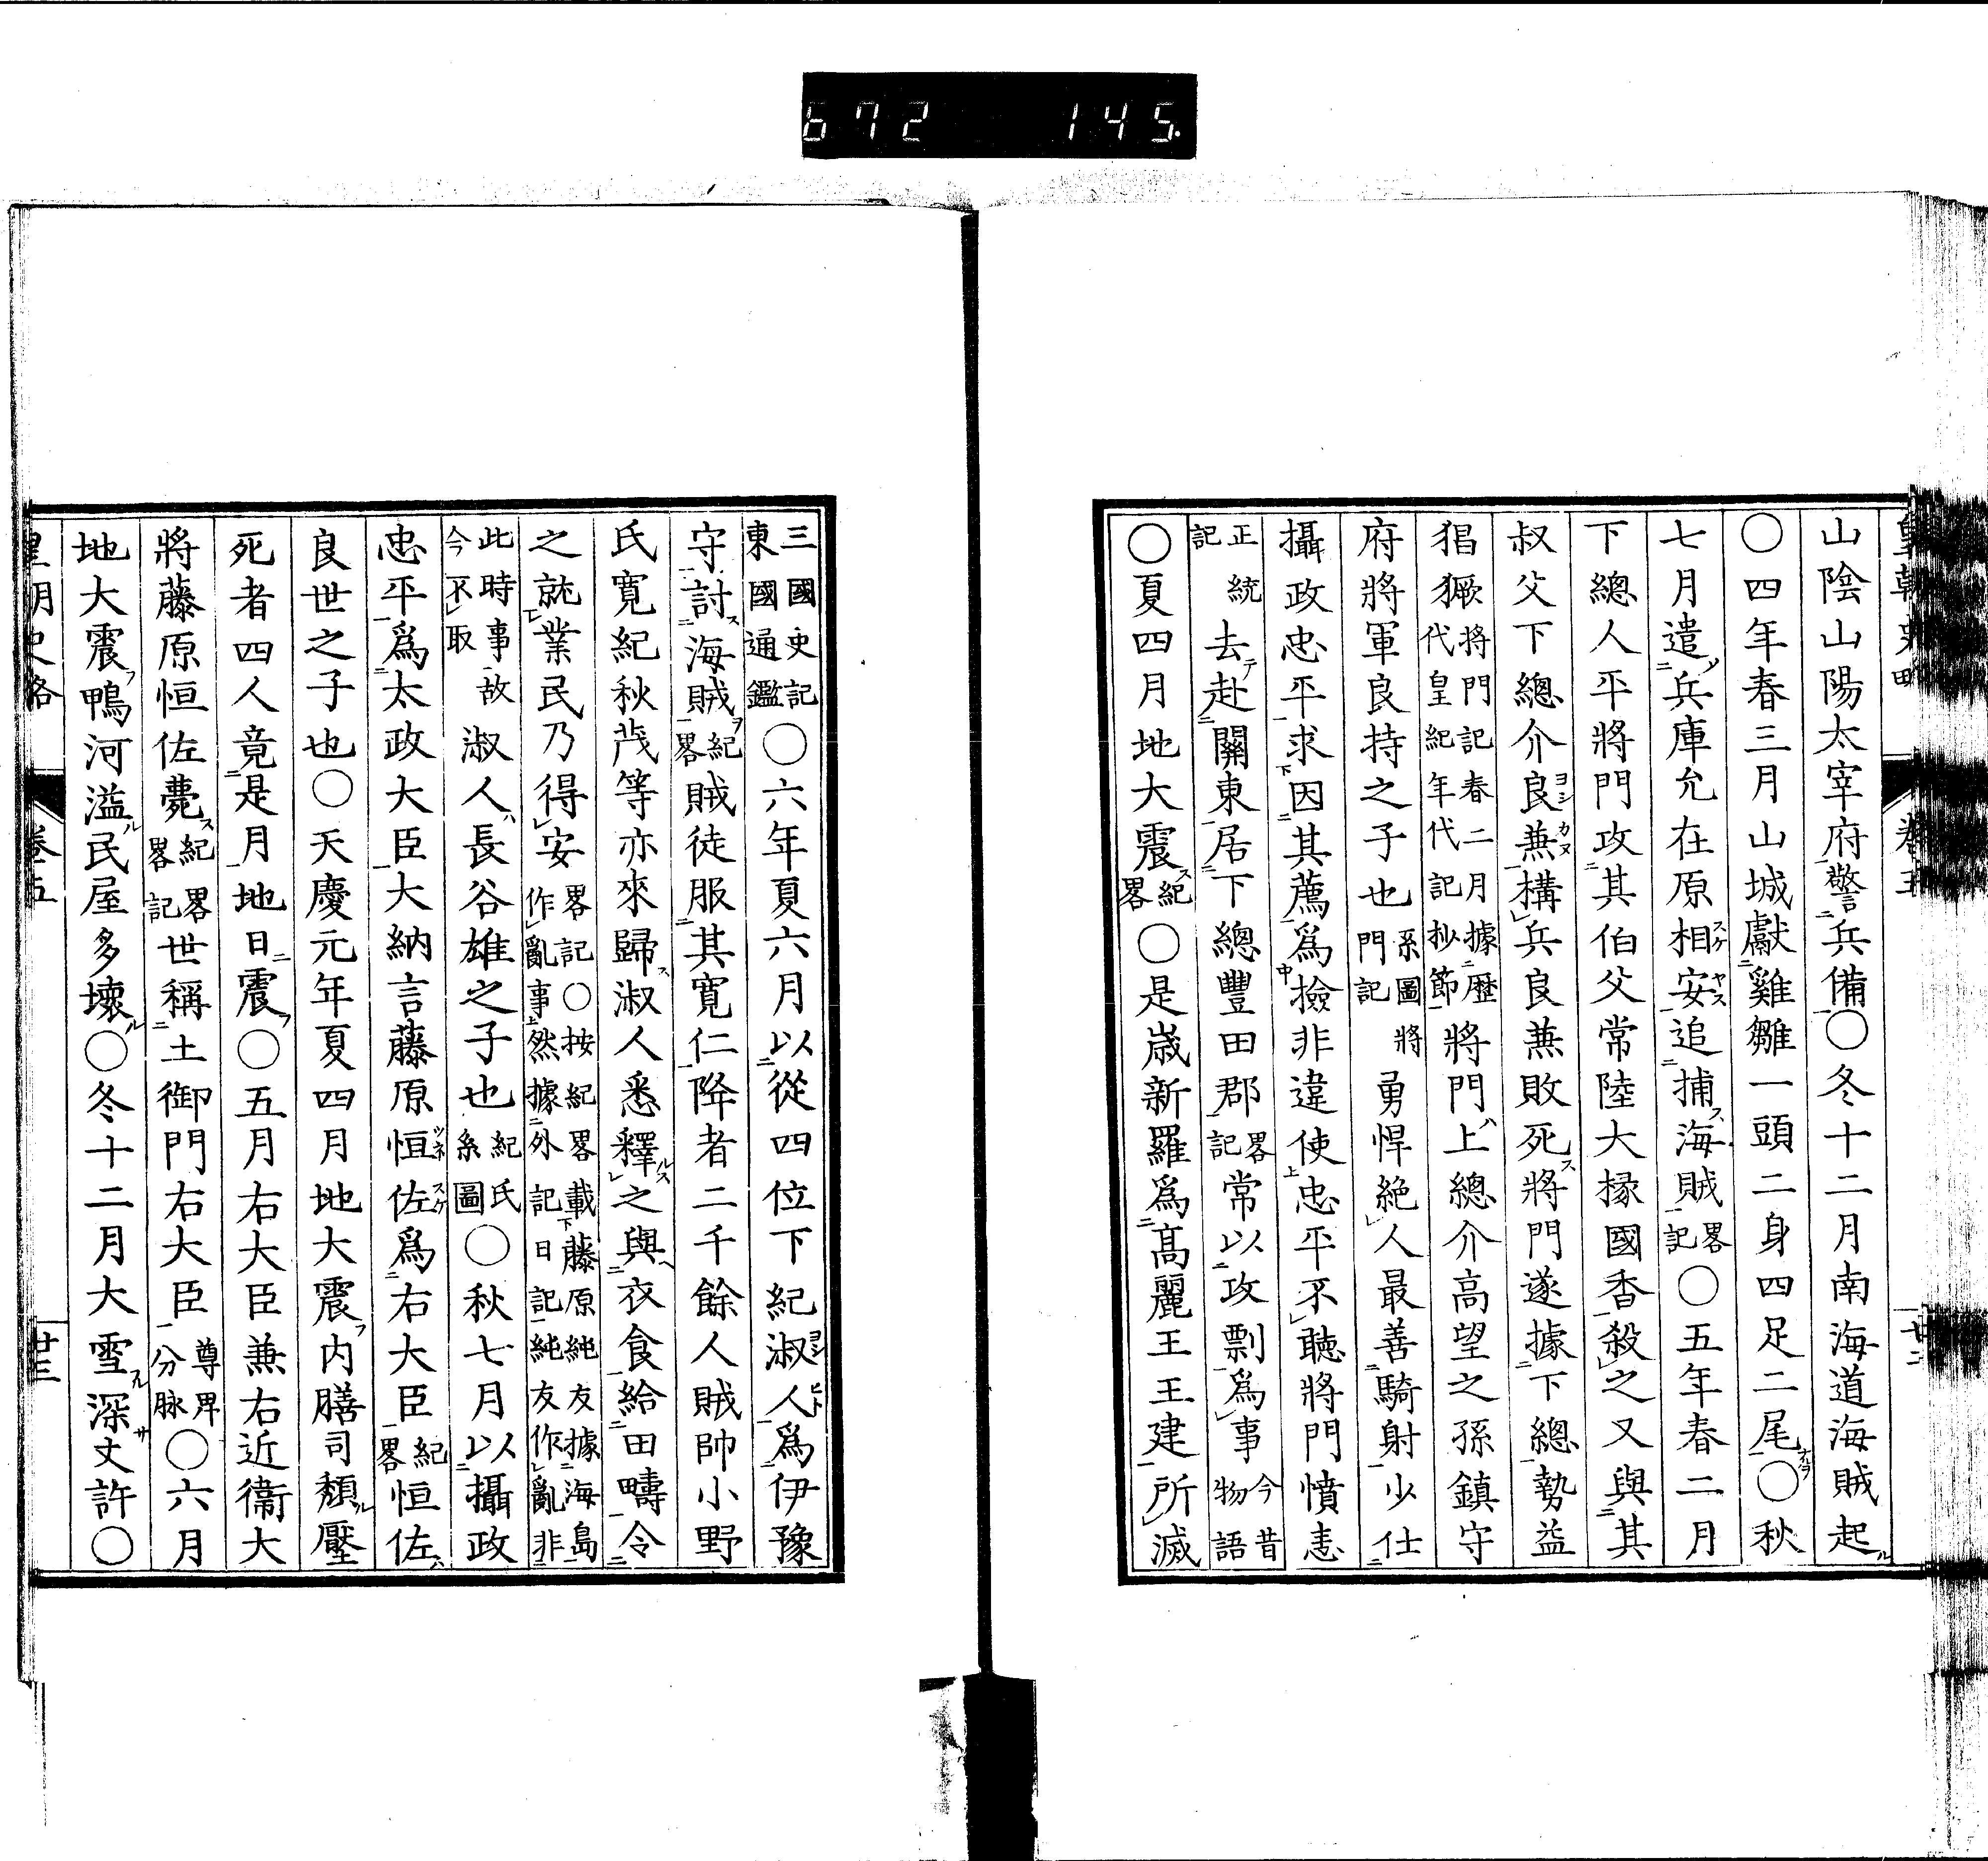 672 145.
山陰山陽太宰府警兵備〇冬十二月南海道海賊起
〇四年春三月山城獻雞雛一頭二身四足二尾〇秋
七月遣兵庫允在原相安追捕海賊畧記〇五年春二月
下總人平將門攻其伯父常陸大掾國香殺之又與其
叔父下總介良兼構兵良兼敗死將門遂據下總勢益
猖獗將門記春二月據歷代皇紀年代記抄節將門上總介高望之孫鎮守
府將軍良持之子也系圖將門記勇悍絶人最善騎射少仕
攝政忠平求因其薦爲撿非違使忠平不聽將門憤恚
正統記去赴關東居下總豐田郡畧記常以攻剽爲事今昔物語
〇夏四月地大震紀畧〇是歳新羅爲高麗王王建所滅
三國史記東國通鑑〇六年夏六月以從四位下紀淑人爲伊豫
守討海賊紀畧賊徒服其寬仁降者二千餘人賊帥小野
氏寬紀秋茂等亦來歸淑人悉釋之與衣食給田疇令
之就業民乃得安畧記〇按紀畧載藤原純友據海島作亂事然據外記日記純友作亂非
此時事故今不取淑人長谷雄之子也紀氏系圖〇秋七月以攝政
忠平爲太政大臣大納言藤原恒佐爲右大臣紀畧恒佐
良世之子也〇天慶元年夏四月地大震內膳司頽壓
死者四人竟是月地日震〇五月右大臣兼右近衞大
將藤原恒佐薨紀畧畧記世稱土御門右大臣尊卑分脉〇六月
地大震鴨河溢民屋多壞〇冬十二月大雪深丈許〇
卷五
廿三